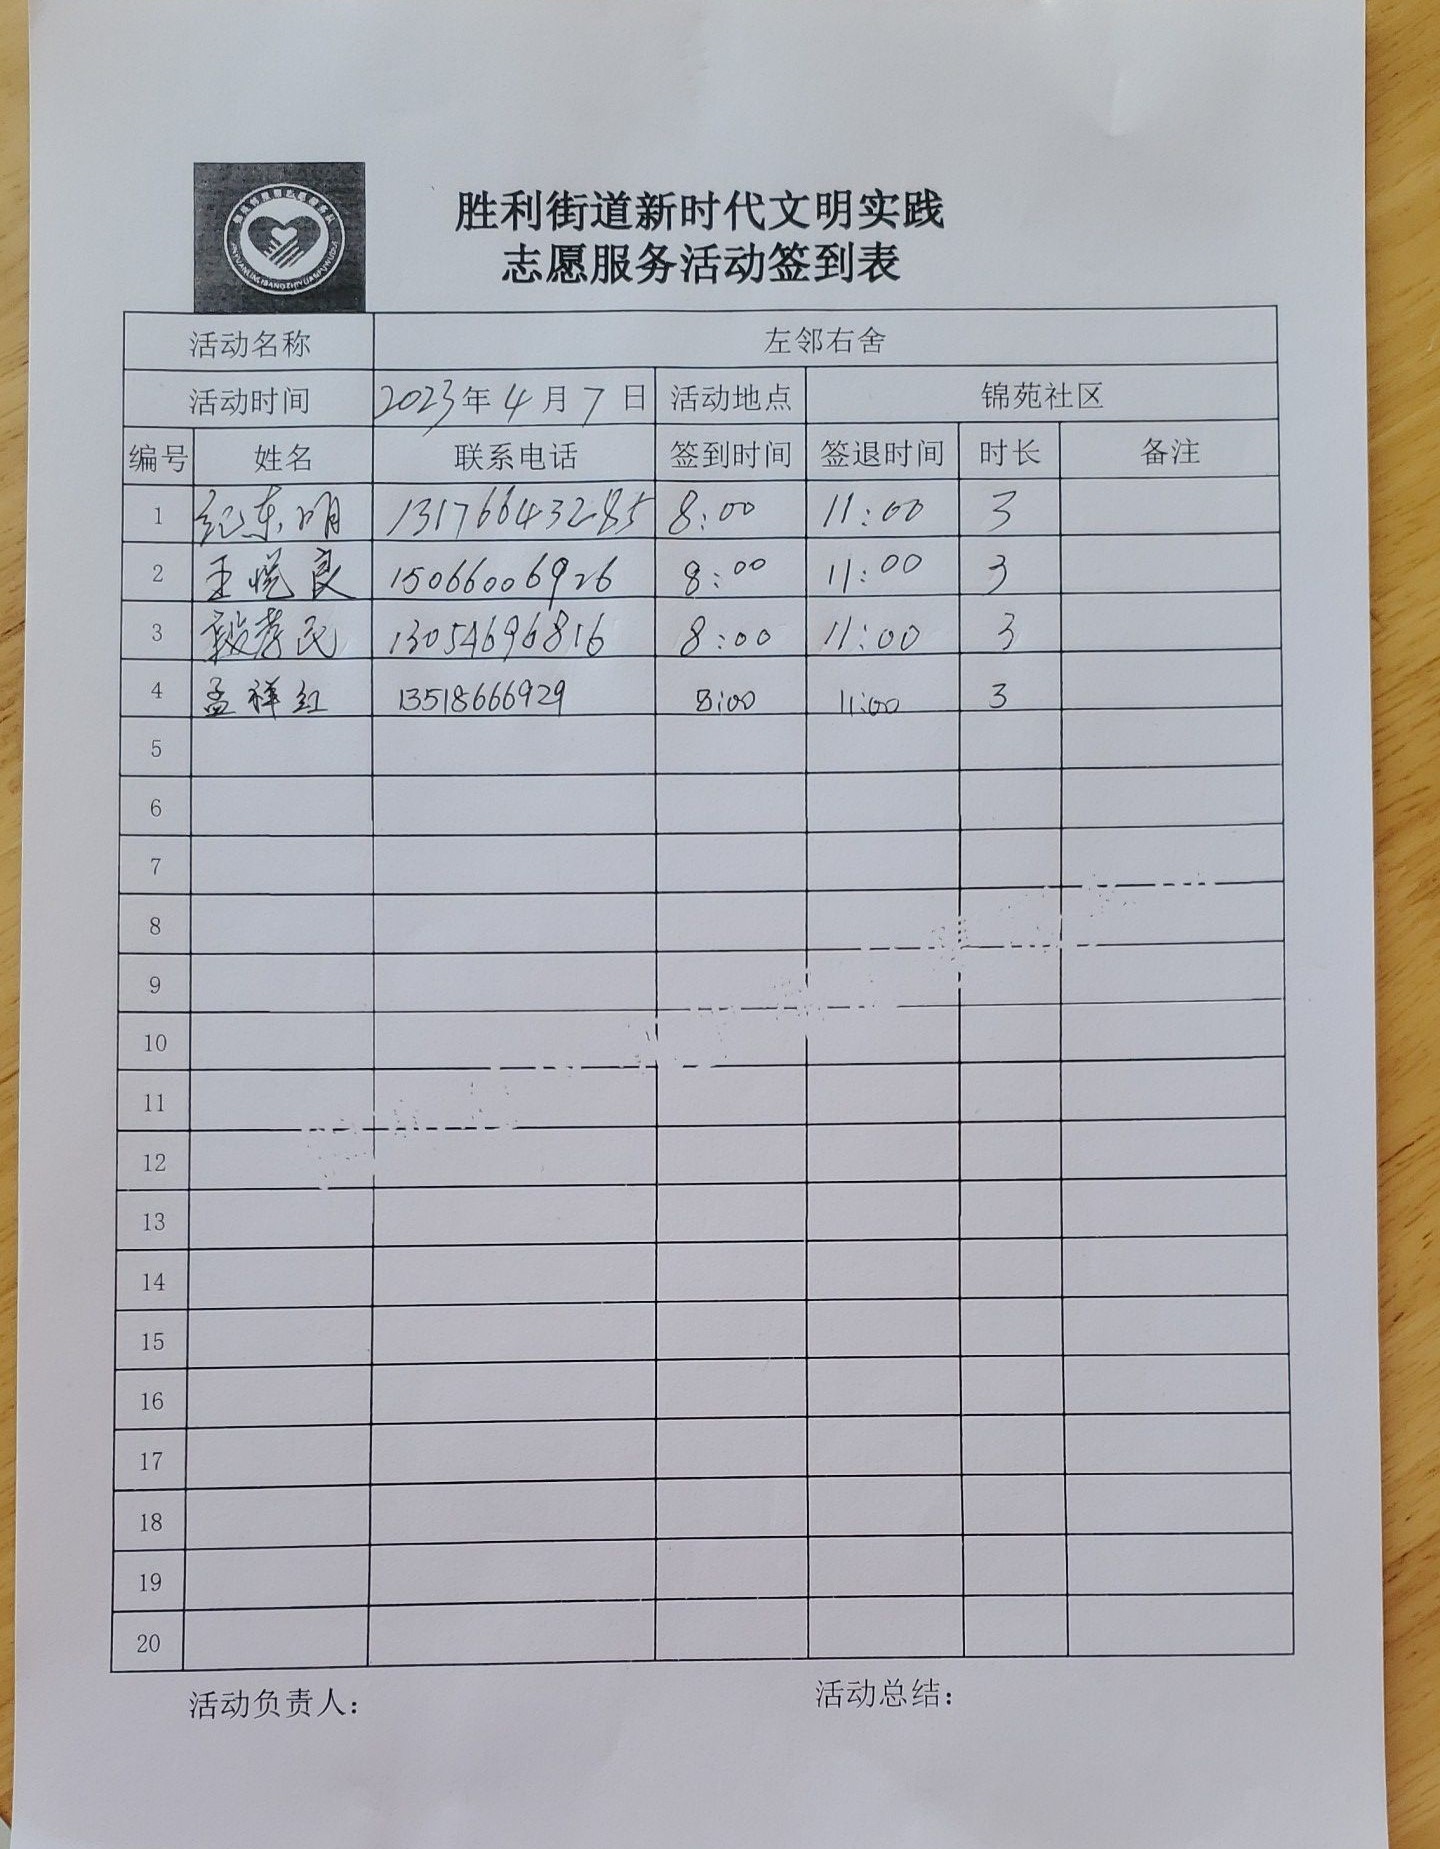 胜利街道新时代文明实践
志愿服务活动签到表
活动名称 左邻右舍
活动时间 2023年4月7日 活动地点 锦苑社区
编号 姓名 联系电话 签到时间 签退时间 时长 备注
1 纪东明 13176643285 8:00 11:00 3
2 王悦良 15066006926 8:00 11:00 3
3 孝民 13054696816 8:00 11:00 3
4 孟祥红 13518666929 8:00 11:00 3
5
6
7
8
9
10
11
12
13
14
15
16
17
18
19
20
活动负责人: 活动总结: